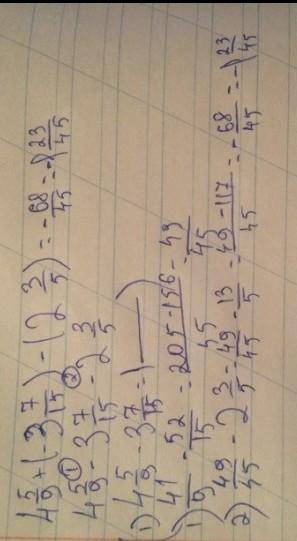 4 5/9 + (-3 7/15) - (2 3/5) = - 68/45 = -1 23/45
4 5/9 ① - 3 7/15 ② - 2 3/5
1) 4 5/9 - 3 7/15 = 1
1) 41/9 - 52/15 = 205-156/45 = 49/45
2) 49/45 - 2 3/5 = 49/45 - 13/5 = 49-117/45 = - 68/45 = -1 23/45